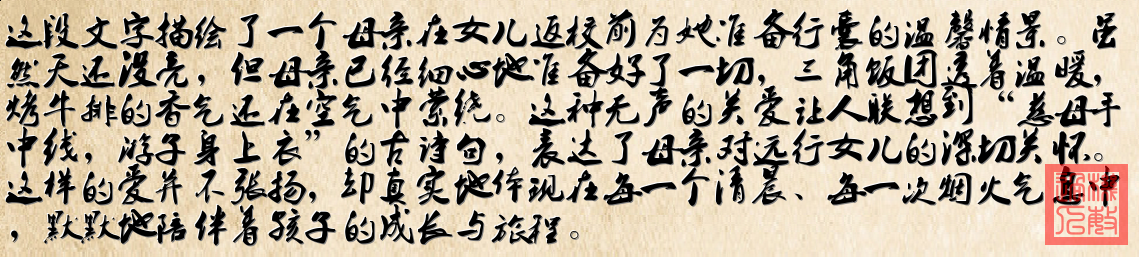 这段文字描绘了一个母亲在女儿返校前为她准备行囊的温馨情景。虽
然天还没亮，但母亲已经细心地准备好了一切，三角饭团透着温暖，
烤牛排的香气还在空气中萦绕。这种无声的关爱让人联想到“慈母手
中线，游子身上衣”的古诗句，表达了母亲对远行女儿的深切关怀。
这样的爱并不張扬，却真实地体现在每一个清晨、每一次烟火气息中
，默默地陪伴着孩子的成长与旅程。